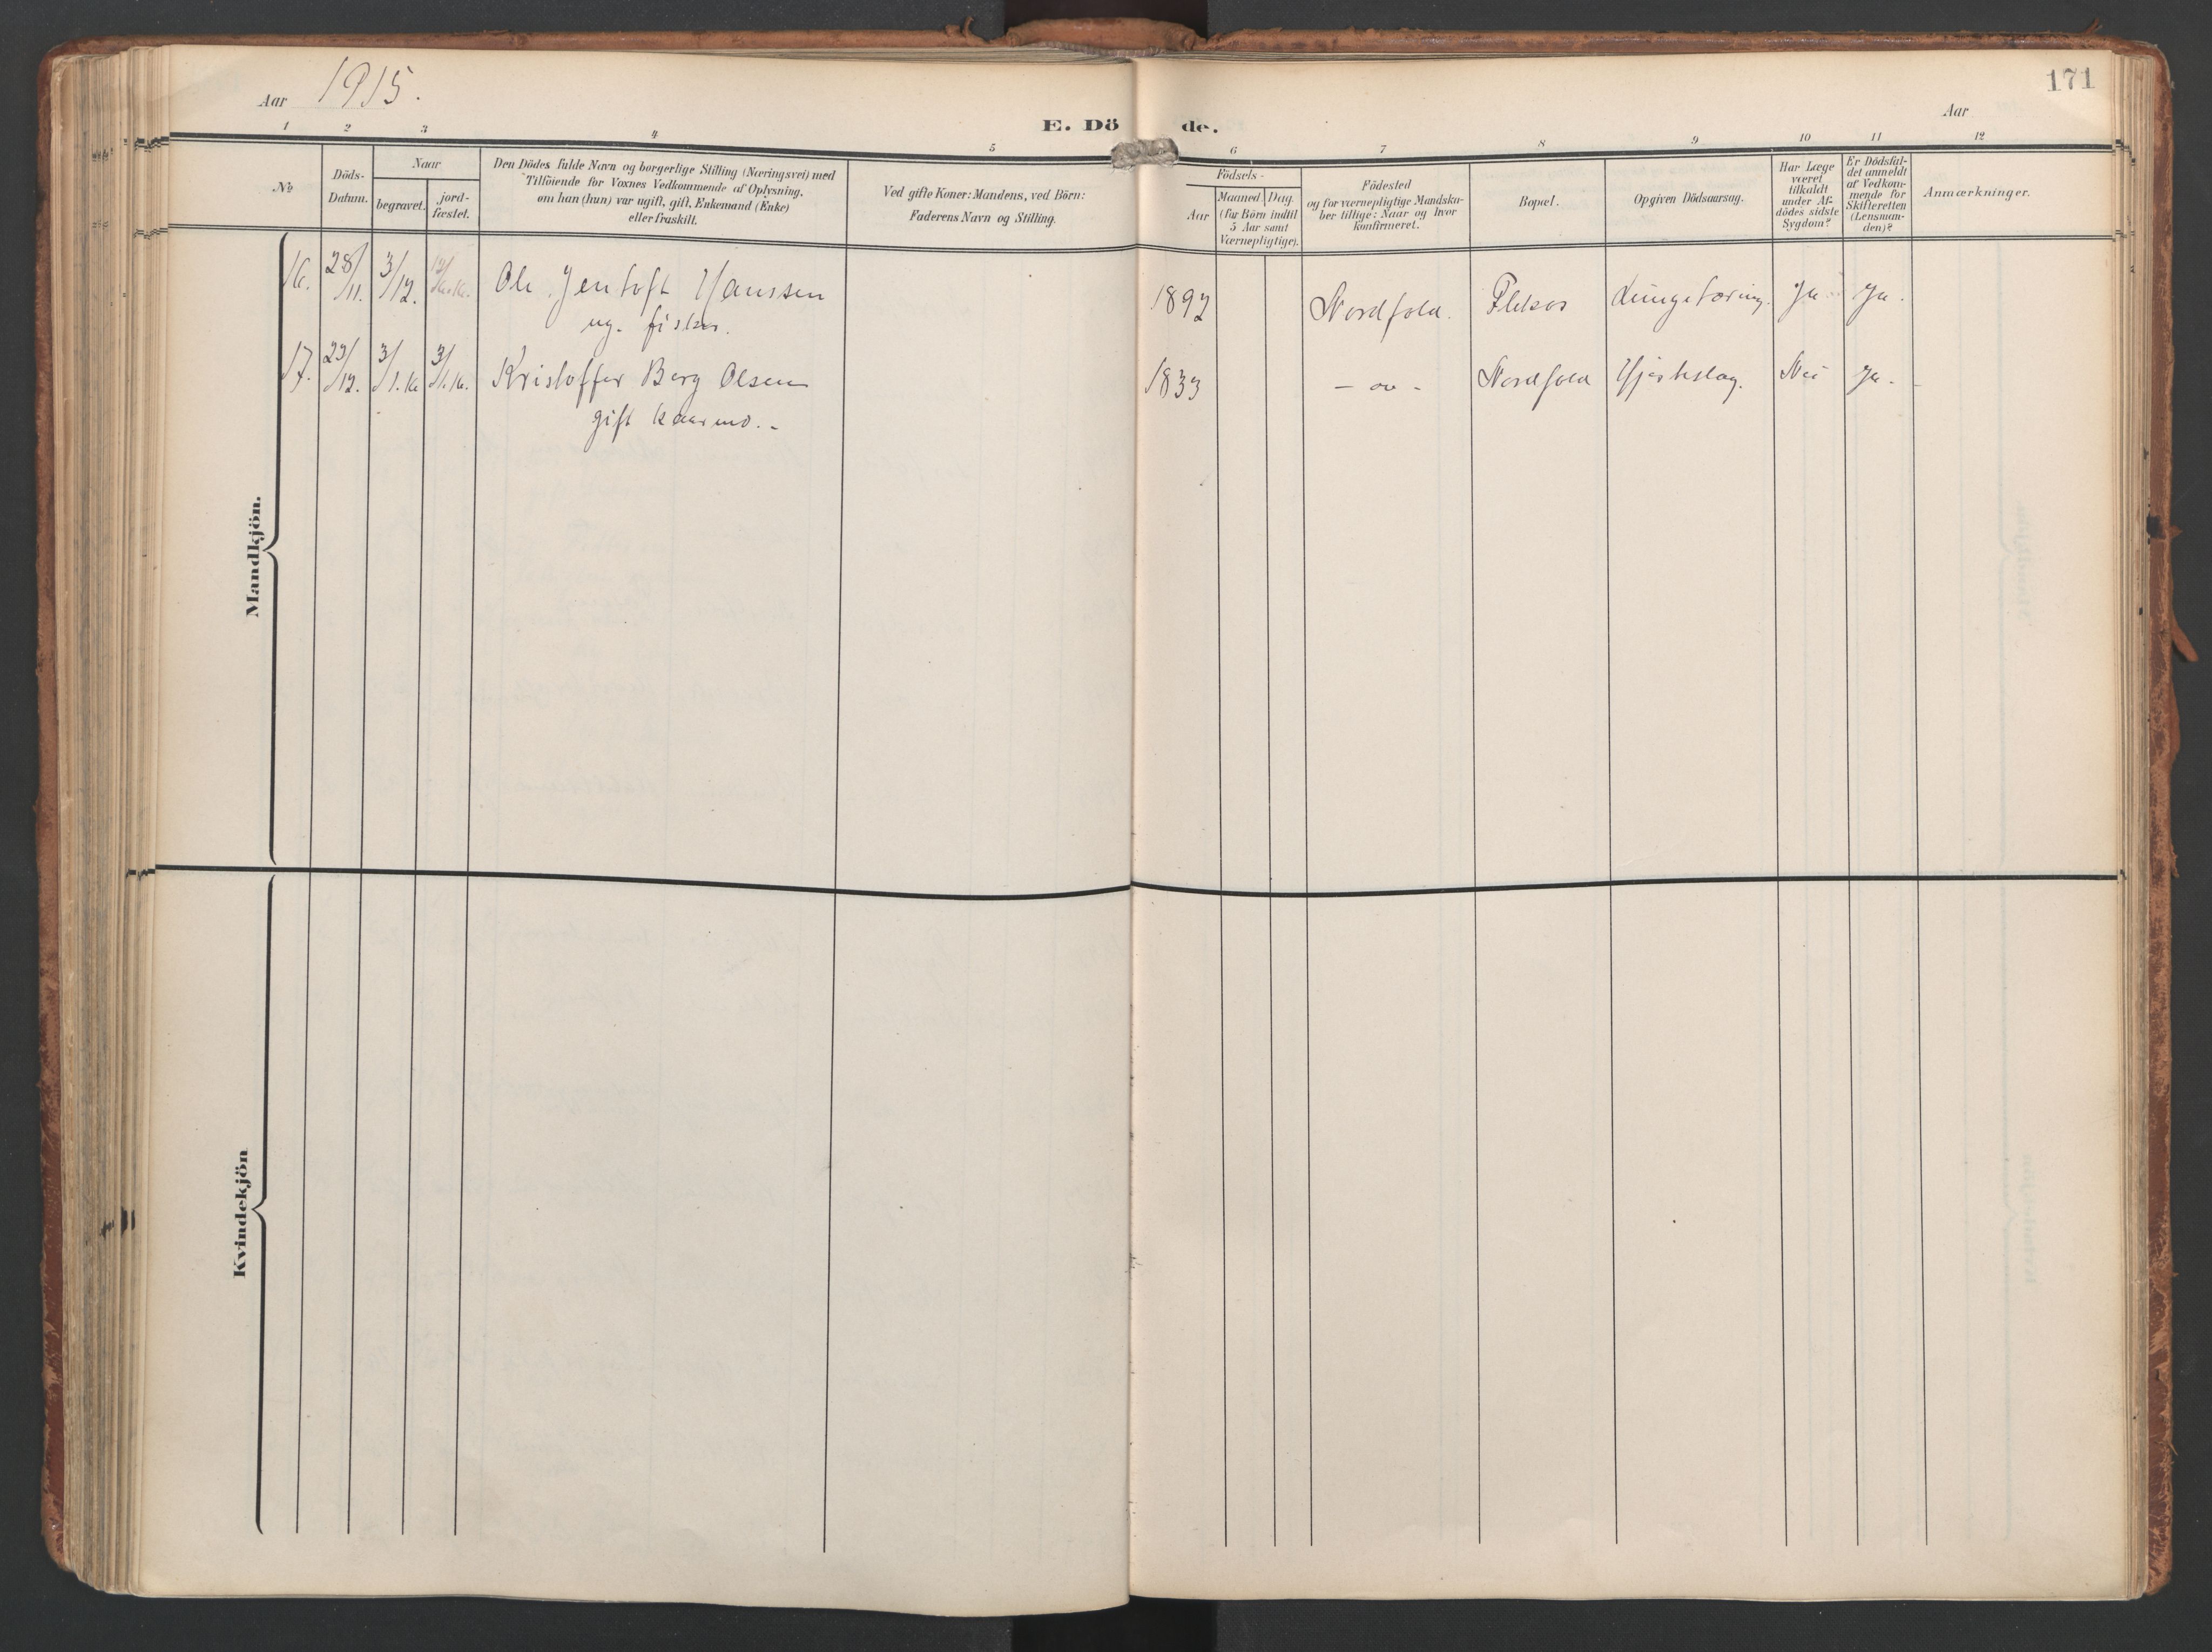 171
Aar 1915.
Aar
E. Döde.
1 2 3 4 5 6 7 8 9 10 11 12
No
Döds-
Datum.
Naar
begravet.
jord-
fæstet.
Den Dödes fulde Navn og borgerlige Stilling (Næringsvei) med
Tilföiende for Voxnes Vedkommende af Oplysning,
om han (hun) var ugift, gift, Enkemand (Enke)
eller fraskilt.
Ved gifte Koner: Mandens, ved Börn:
Faderens Navn og Stilling.
Födsels-
Aar
Maaned.
Dag.
(for Börn indtil
5 Aar samt
Værnepligtige).
Födested
og for værnepligtige Mandska-
ber tillige: Naar og hvor
konfirmeret.
Bopæl.
Opgiven Dödsaarsag.
Har Læge
været
tilkaldt
under Af-
dödes sidste
Sygdom?
Er Dödsfal-
det anmeldt
af Vedkom-
mende for
Skifteretten
(Lensman-
den)?
Anmærkninger.
Mandkjön.
16. 28/11. 3/12. Ole Jentoft Hanssen 1892 Nordfold. Flekos Lungetæring. Ja Ja.
ug. fisker.
17. 23/12. 3/1.16 3/1.16. Kristoffer Berg Olsen 1833 - " - Nordfold Hjerteslag. Nei Ja. -
gift kaarmd. -
Kvindekjön